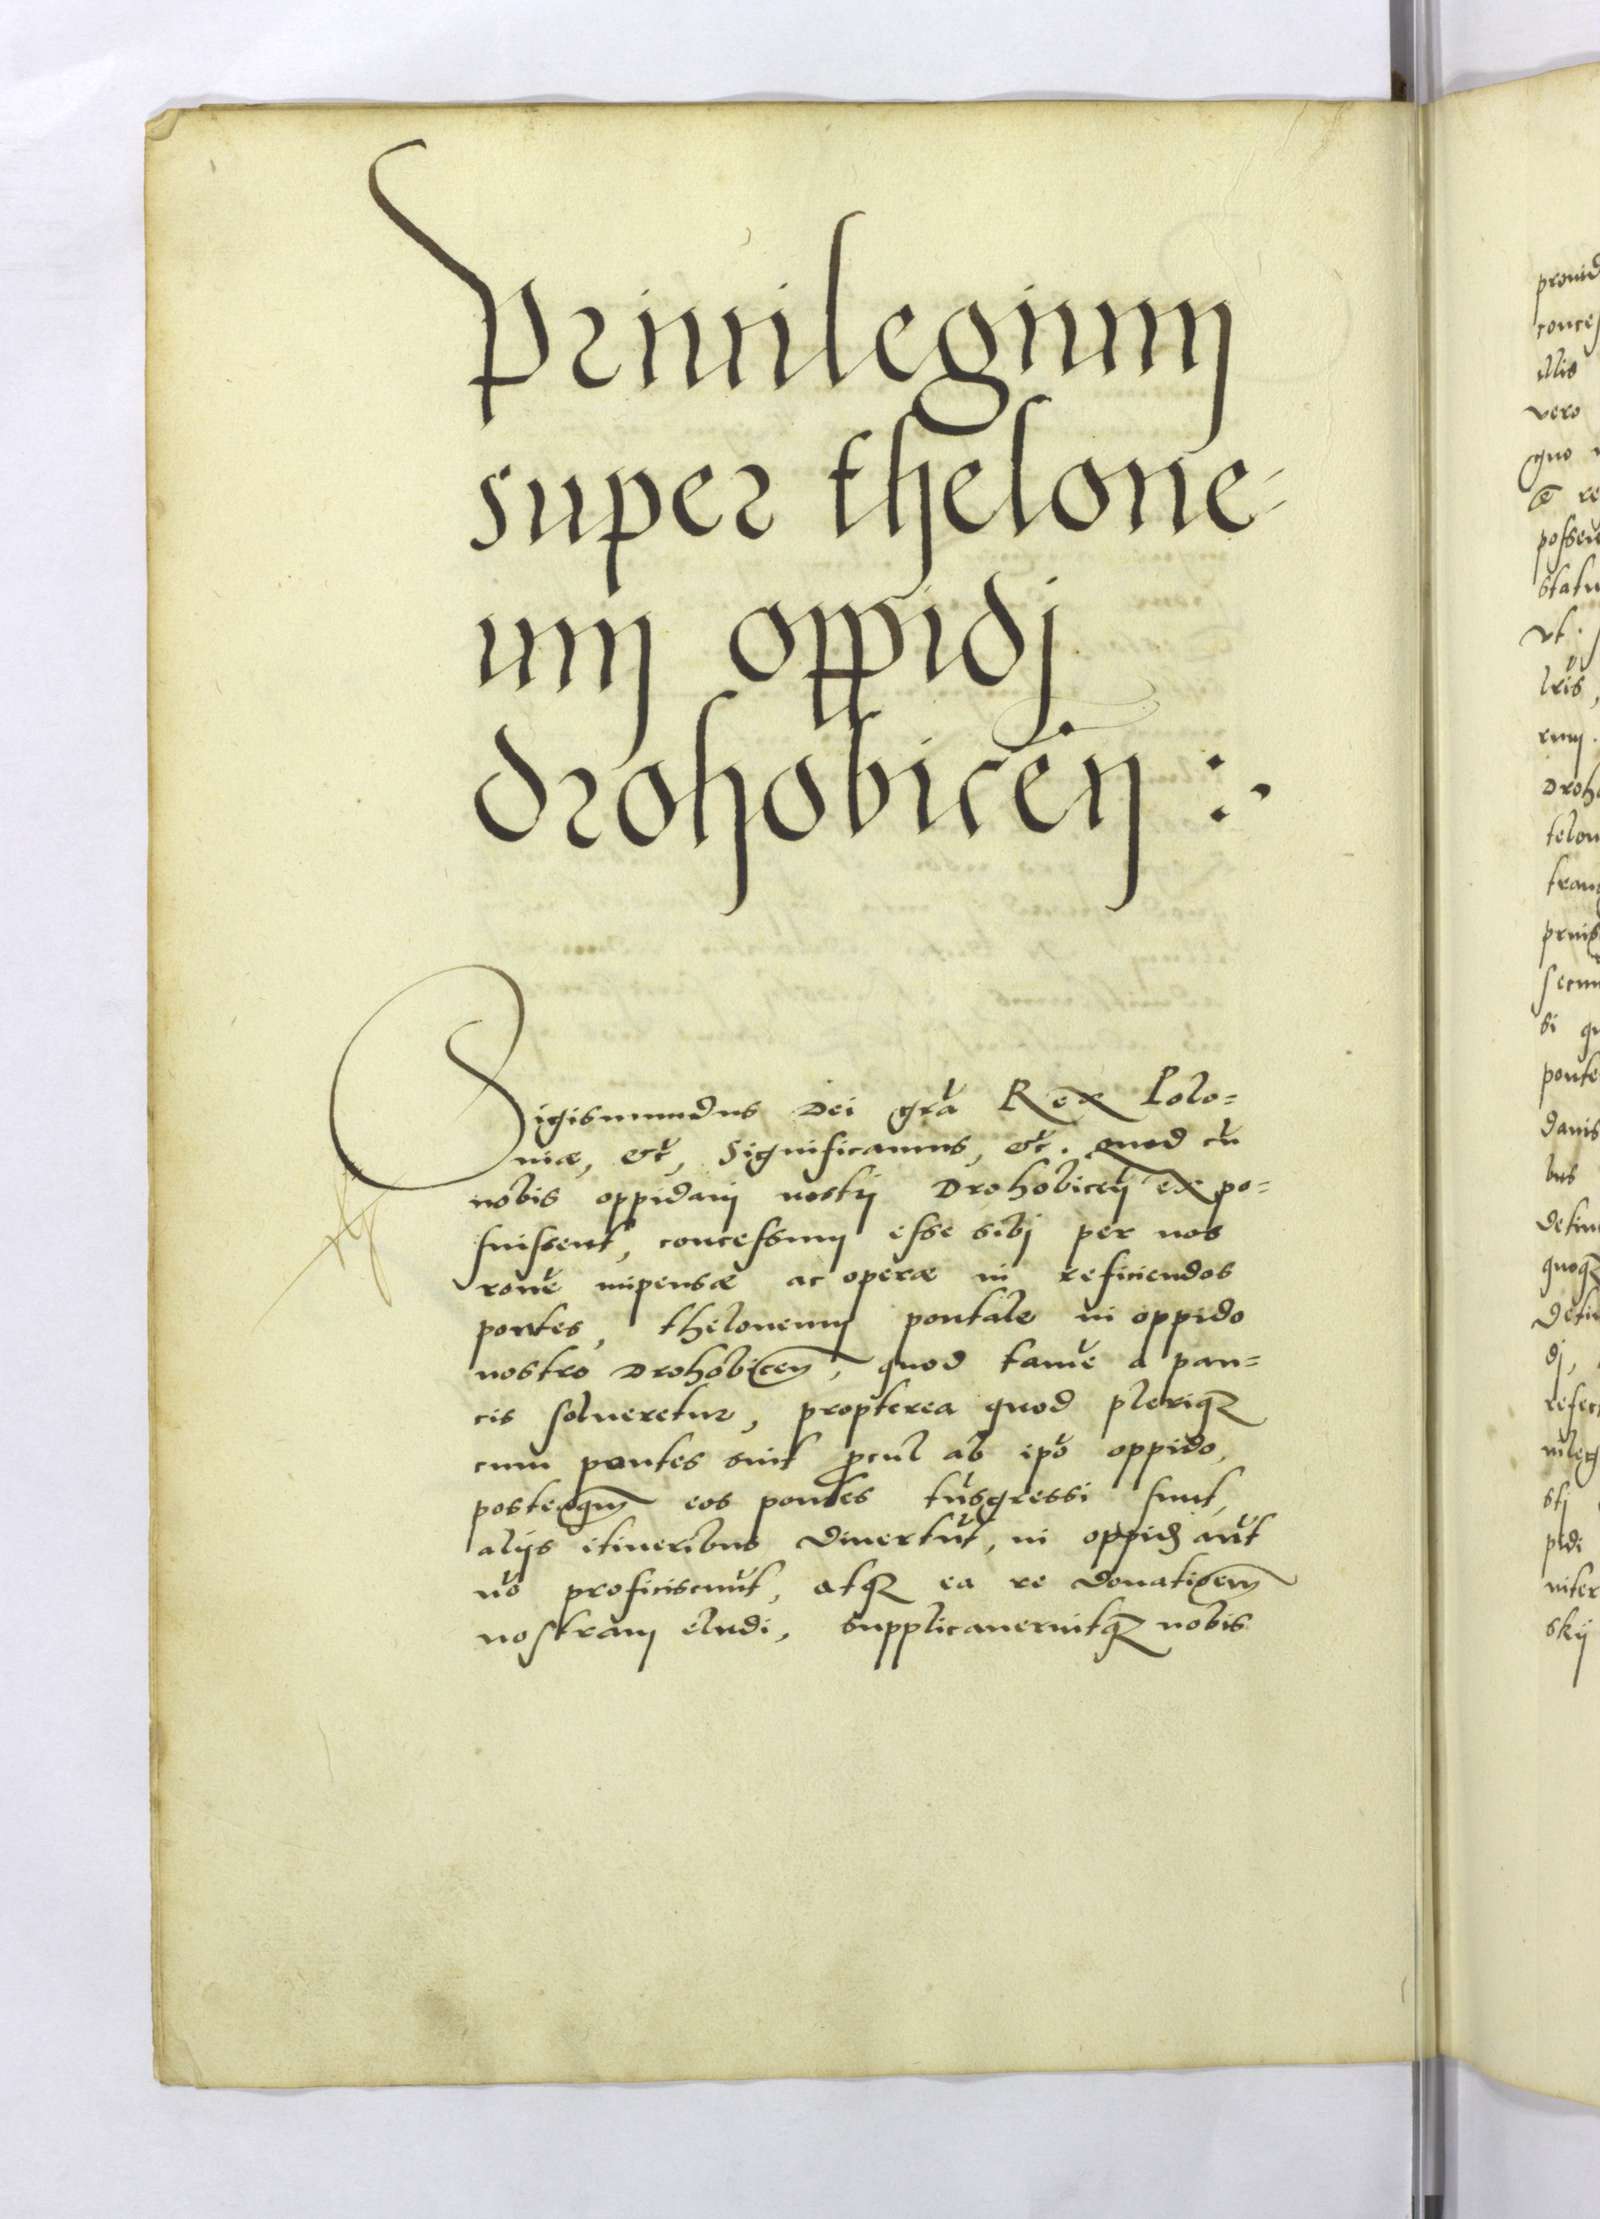 Priuilegium
super thelone-
um oppidj
drohobicen̄ :.
Sigismundus Dei gr̃a Rex Polo=
niæ, etc̃, Significamus, etc̃. quod cũ
nobis oppidani nostrj Drohobicen̄ expo=
suissent, concessum esse sibj per nos
rone impensæ ac operæ in reficiendos
pontes, theloneum pontale in oppido
nostro Drohobicen̄, quod tamẽ a pau=
cis solueretur, propterea quod pleriqꝫ
cum pontes sint ꝓcul ab ipõ oppido,
posteaqm̄ eos pontes trãsgressi sunt,
alijs itineribus diuertũt, in oppid aũt
nõ proficiscũt, atqꝫ ea re donationem
nostram eludi, supplicaueruntqꝫ nobis
prouid
conces
illis
vero
quo
re
possen
statu
vt
lr̃is,
rum.
Droh
telon
trans
secun
si qu
ponte
danis
bus
detin
quoqꝫ
detin
dj,
refect
uileg
stj
pidi
niter
skij